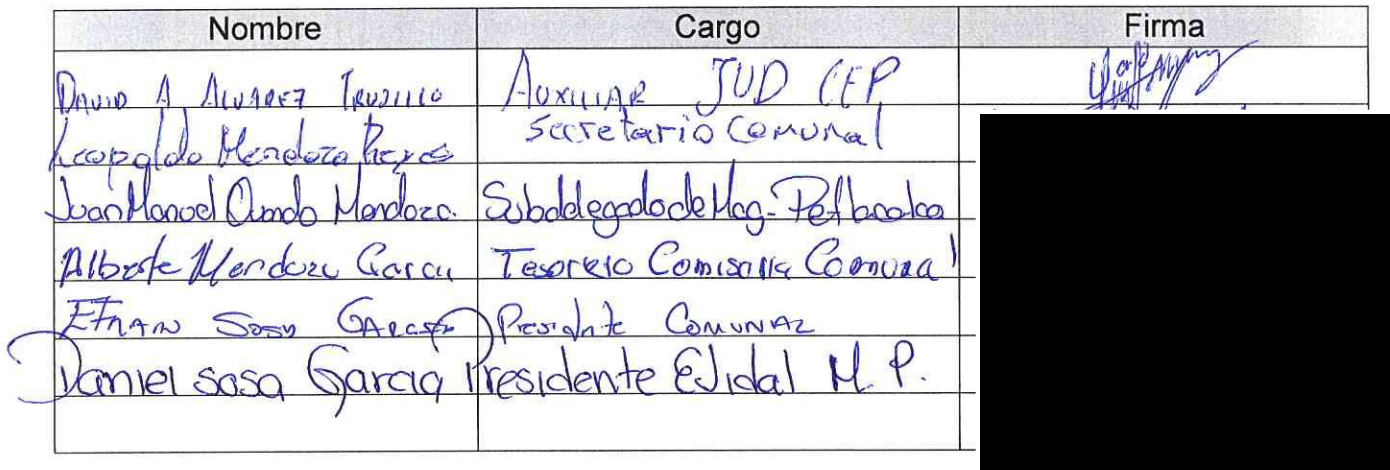 Nombre Cargo Firma
DAVID A. ALVAREZ TRUJILLO AUXILIAR JUD CEP
Leopoldo Mendoza Reyes Secretario Comunal
Juan Manuel Mendoza. Subdelegado de Mag-
Alberto Mendoza Garcia Tesorero Comisaria Comunal
EFRAN SOSA GARCIA Presidnte COMUNAL
Daniel sosa Garcia Presidente EJidal M. P.